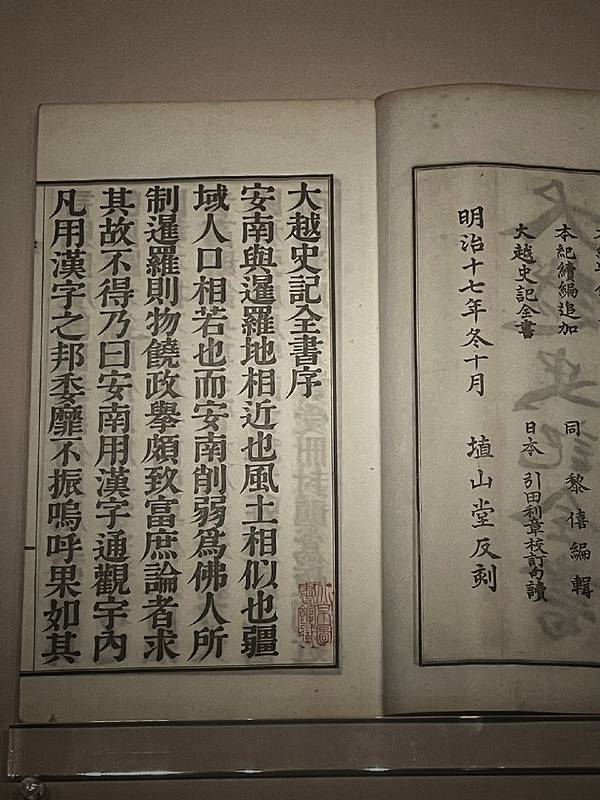 本紀續編追加 同 黎僖編輯
大越史記全書 日本 引田利章校訂句讀
明治十七年冬十月 埴山堂反刻
大越史記全書序
安南與暹羅地相近也風土相似也疆
域人口相若也而安南削弱爲佛人所
制暹羅則物饒政擧頗致富庶論者求
其故不得乃曰安南用漢字通觀宇內
凡用漢字之邦委靡不振嗚呼果如其